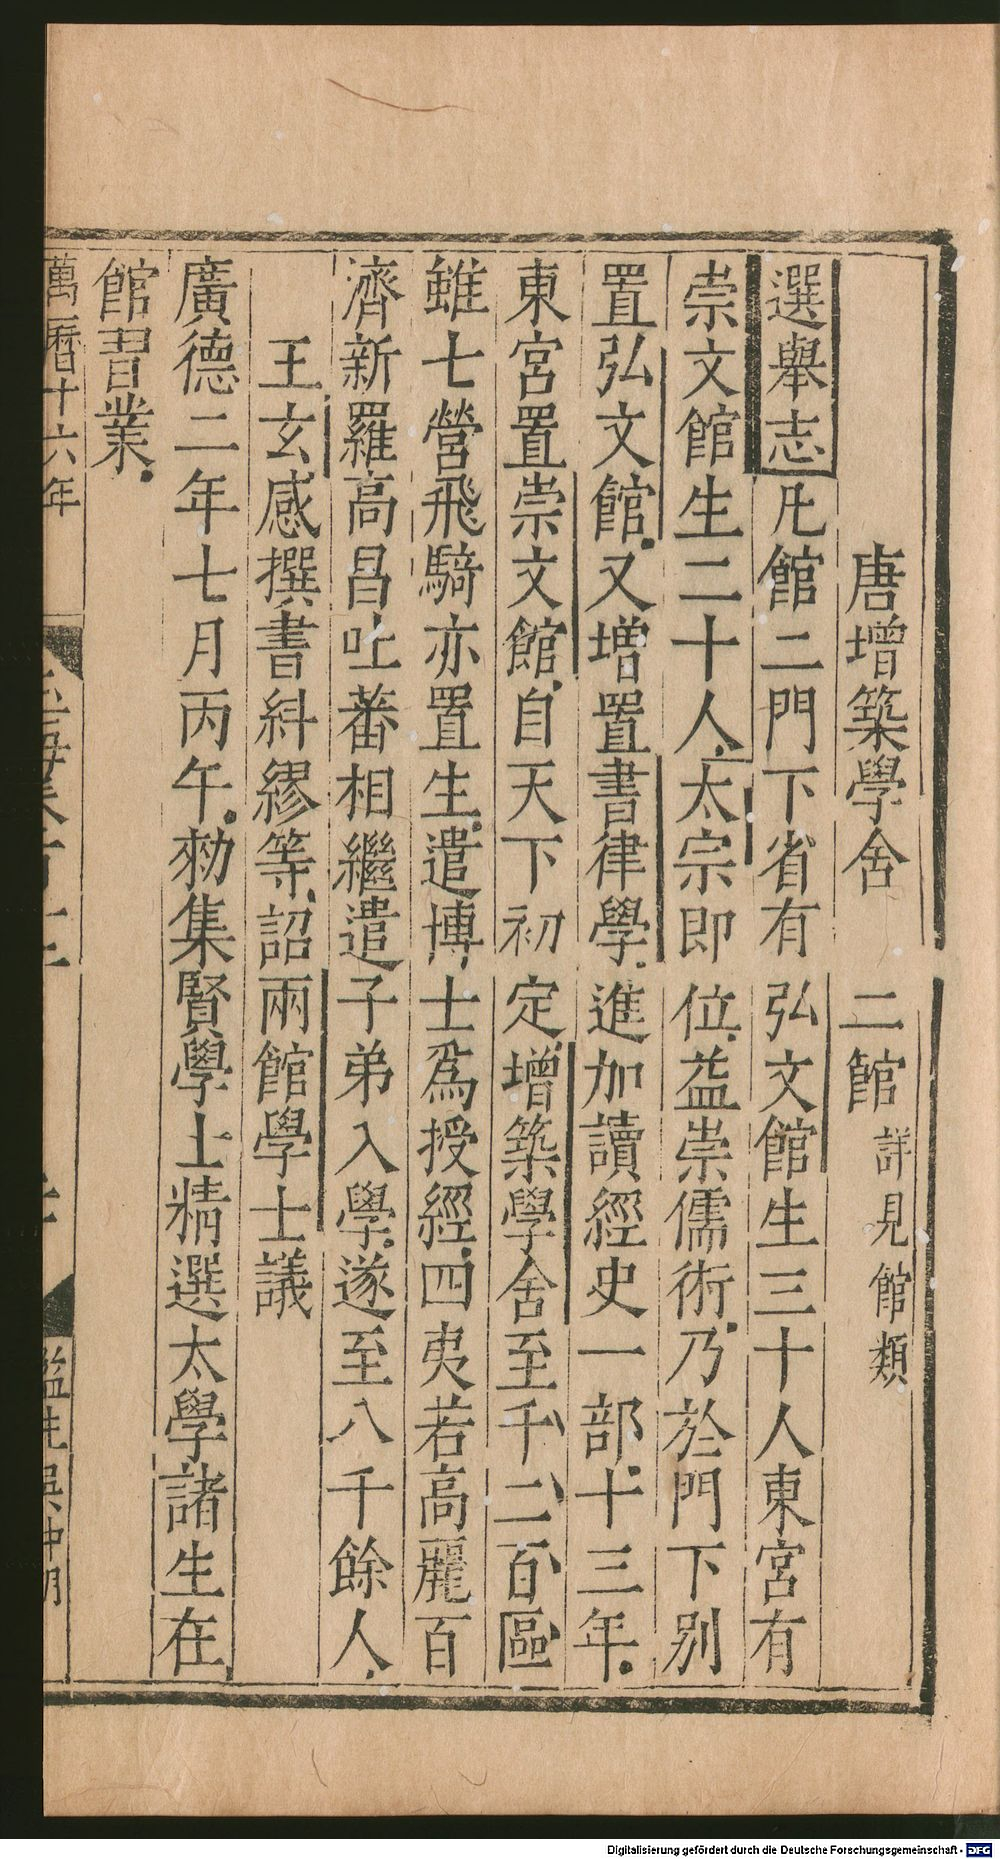 唐增築學舍　二館詳見館類
選舉志凡館二門下省有弘文館生三十人東宮有
崇文館生二十人太宗即位益崇儒術乃於門下別
置弘文館又增置書律學進加讀經史一部十三年
東宮置崇文館自天下初定增築學舍至千二百區
雖七營飛騎亦置生遣博士為授經四夷若高麗百
濟新羅高昌吐蕃相繼遣子弟入學遂至八千餘人
王玄感撰書糾繆等詔兩館學士議
廣德二年七月丙午勑集賢學士精選太學諸生在
館習業
萬曆十六年
監生吳仲明
Digitalisierung gefördert durch die Deutsche Forschungsgemeinschaft - DFG